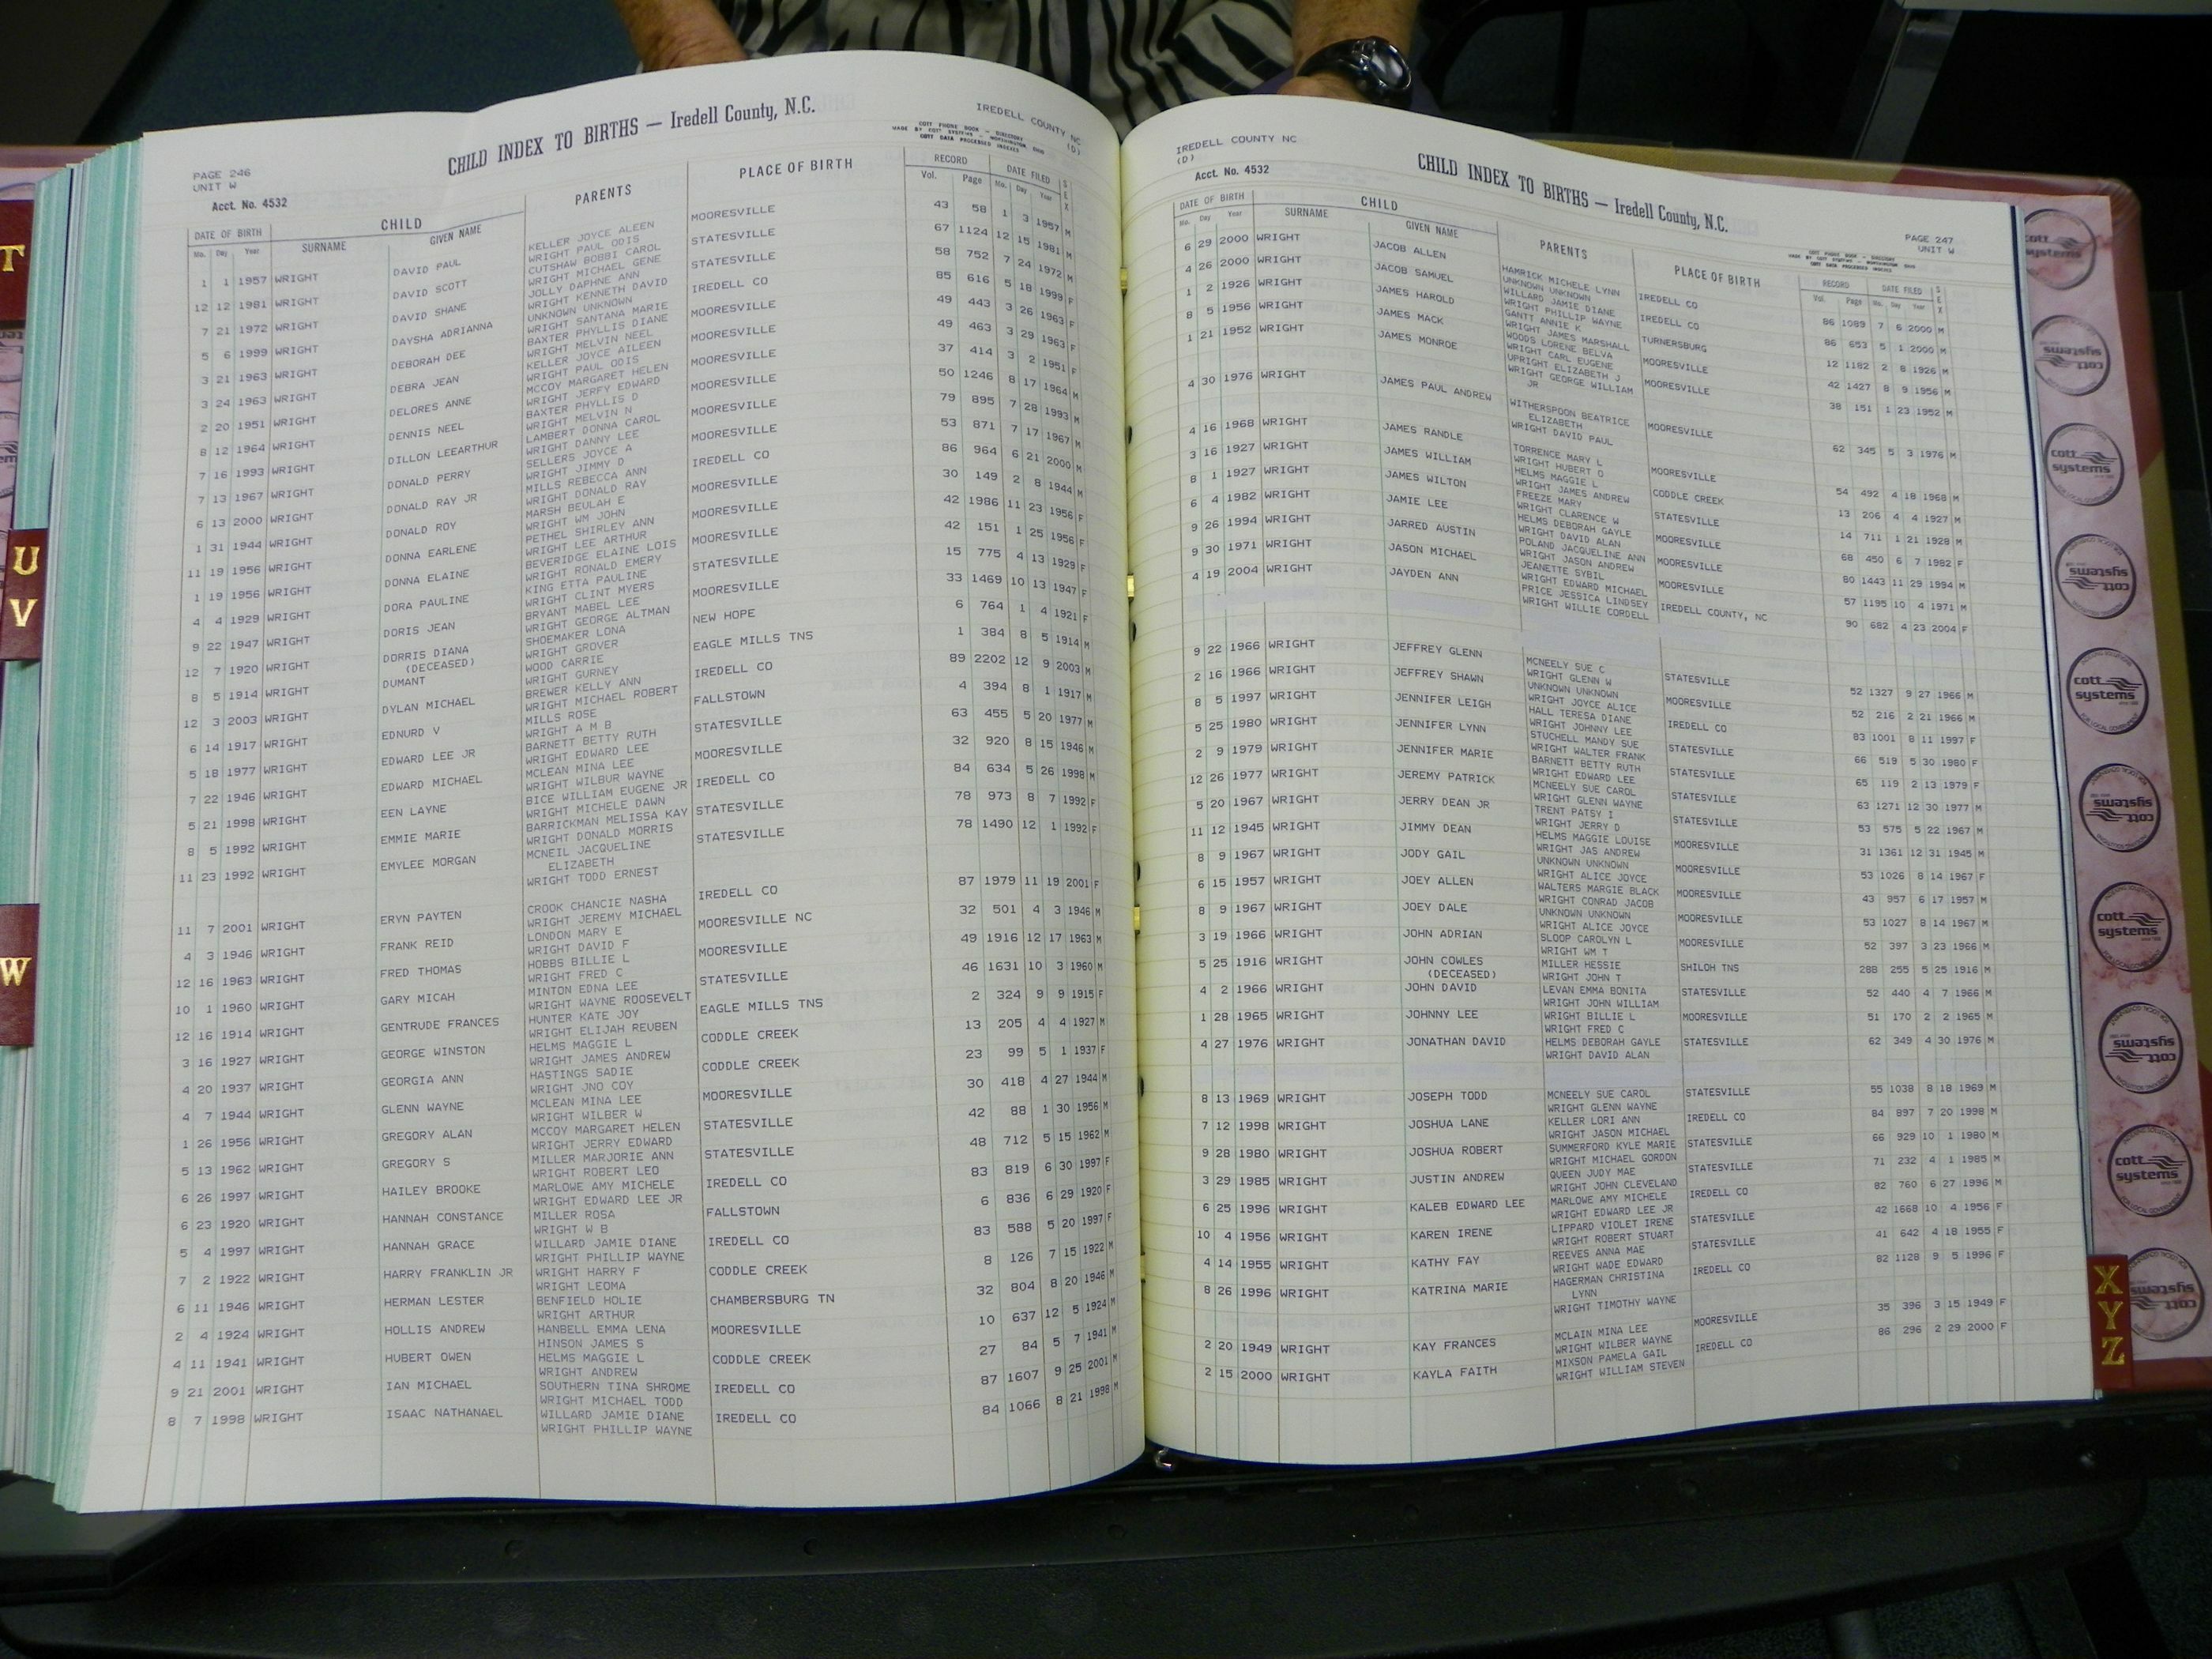 PAGE 246
UNIT W
CHILD INDEX TO BIRTHS — Iredell County, N.C.
IREDELL COUNTY NC
(D)
COTT PHONE BOOK - DIRECTORY
MADE BY COTT SYSTEMS - WORTHINGTON, OHIO
COTT DATA PROCESSED INDEXES
Acct. No. 4532
DATE OF BIRTH CHILD PARENTS PLACE OF BIRTH RECORD DATE FILED SEX
Mo. Day Year SURNAME GIVEN NAME Vol. Page Mo. Day Year
1 1 1957 WRIGHT DAVID PAUL KELLER JOYCE ALEEN MOORESVILLE 43 58 1 3 1957 M
WRIGHT PAUL ODIS
12 12 1981 WRIGHT DAVID SCOTT CUTSHAW BOBBI CAROL STATESVILLE 67 1124 12 15 1981 M
WRIGHT MICHAEL GENE
7 21 1972 WRIGHT DAVID SHANE JOLLY DAPHNE ANN STATESVILLE 58 752 7 24 1972 M
WRIGHT KENNETH DAVID
5 6 1999 WRIGHT DAYSHA ADRIANNA UNKNOWN UNKNOWN IREDELL CO 85 616 5 18 1999 F
WRIGHT SANTANA MARIE
3 21 1963 WRIGHT DEBORAH DEE BAXTER PHYLLIS DIANE MOORESVILLE 49 443 3 26 1963 F
WRIGHT MELVIN NEEL
3 24 1963 WRIGHT DEBRA JEAN KELLER JOYCE AILEEN MOORESVILLE 49 463 3 29 1963 F
WRIGHT PAUL ODIS
2 20 1951 WRIGHT DELORES ANNE MCCOY MARGARET HELEN MOORESVILLE 37 414 3 2 1951 F
WRIGHT JERFY EDWARD
8 12 1964 WRIGHT DENNIS NEEL BAXTER PHYLLIS D MOORESVILLE 50 1246 8 17 1964 M
WRIGHT MELVIN N
7 16 1993 WRIGHT DILLON LEEARTHUR LAMBERT DONNA CAROL MOORESVILLE 79 895 7 28 1993 M
WRIGHT DANNY LEE
7 13 1967 WRIGHT DONALD PERRY SELLERS JOYCE A MOORESVILLE 53 871 7 17 1967 M
WRIGHT JIMMY D
6 13 2000 WRIGHT DONALD RAY JR MILLS REBECCA ANN IREDELL CO 86 964 6 21 2000 M
WRIGHT DONALD RAY
1 31 1944 WRIGHT DONALD ROY MARSH BEULAH E MOORESVILLE 30 149 2 8 1944 M
WRIGHT WM JOHN
11 19 1956 WRIGHT DONNA EARLENE PETHEL SHIRLEY ANN MOORESVILLE 42 1986 11 23 1956 F
WRIGHT LEE ARTHUR
1 19 1956 WRIGHT DONNA ELAINE BEVERIDGE ELAINE LOIS MOORESVILLE 42 151 1 25 1956 F
WRIGHT RONALD EMERY
4 4 1929 WRIGHT DORA PAULINE KING ETTA PAULINE STATESVILLE 15 775 4 13 1929 F
WRIGHT CLINT MYERS
9 22 1947 WRIGHT DORIS JEAN BRYANT MABEL LEE MOORESVILLE 33 1469 10 13 1947 F
WRIGHT GEORGE ALTMAN
12 7 1920 WRIGHT DORRIS DIANA SHOEMAKER LONA NEW HOPE 6 764 1 4 1921 F
(DECEASED) WRIGHT GROVER
8 5 1914 WRIGHT DUMANT WOOD CARRIE EAGLE MILLS TNS 1 384 8 5 1914 M
WRIGHT GURNEY
12 3 2003 WRIGHT DYLAN MICHAEL BREWER KELLY ANN IREDELL CO 89 2202 12 9 2003 M
WRIGHT MICHAEL ROBERT
6 14 1917 WRIGHT EDNURD V MILLS ROSE FALLSTOWN 4 394 8 1 1917 M
WRIGHT A M B
5 18 1977 WRIGHT EDWARD LEE JR BARNETT BETTY RUTH STATESVILLE 63 455 5 20 1977 M
WRIGHT EDWARD LEE
7 22 1946 WRIGHT EDWARD MICHAEL MCLEAN MINA LEE MOORESVILLE 32 920 8 15 1946 M
WRIGHT WILBUR WAYNE
5 21 1998 WRIGHT EEN LAYNE BICE WILLIAM EUGENE JR IREDELL CO 84 634 5 26 1998 M
WRIGHT MICHELE DAWN
8 5 1992 WRIGHT EMMIE MARIE BARRICKMAN MELISSA KAY STATESVILLE 78 973 8 7 1992 F
WRIGHT DONALD MORRIS
11 23 1992 WRIGHT EMYLEE MORGAN MCNEIL JACQUELINE STATESVILLE 78 1490 12 1 1992 F
ELIZABETH
WRIGHT TODD ERNEST
11 7 2001 WRIGHT ERYN PAYTEN CROOK CHANCIE NASHA IREDELL CO 87 1979 11 19 2001 F
WRIGHT JEREMY MICHAEL
4 3 1946 WRIGHT FRANK REID LONDON MARY E MOORESVILLE NC 32 501 4 3 1946 M
WRIGHT DAVID F
12 16 1963 WRIGHT FRED THOMAS HOBBS BILLIE L MOORESVILLE 49 1916 12 17 1963 M
WRIGHT FRED C
10 1 1960 WRIGHT GARY MICAH MINTON EDNA LEE STATESVILLE 46 1631 10 3 1960 M
WRIGHT WAYNE ROOSEVELT
12 16 1914 WRIGHT GENTRUDE FRANCES HUNTER KATE JOY EAGLE MILLS TNS 2 324 9 9 1915 F
WRIGHT ELIJAH REUBEN
3 16 1927 WRIGHT GEORGE WINSTON HELMS MAGGIE L CODDLE CREEK 13 205 4 4 1927 M
WRIGHT JAMES ANDREW
4 20 1937 WRIGHT GEORGIA ANN HASTINGS SADIE CODDLE CREEK 23 99 5 1 1937 F
WRIGHT JNO COY
4 7 1944 WRIGHT GLENN WAYNE MCLEAN MINA LEE MOORESVILLE 30 418 4 27 1944 M
WRIGHT WILBER W
1 26 1956 WRIGHT GREGORY ALAN MCCOY MARGARET HELEN STATESVILLE 42 88 1 30 1956 M
WRIGHT JERRY EDWARD
5 13 1962 WRIGHT GREGORY S MILLER MARJORIE ANN STATESVILLE 48 712 5 15 1962 M
WRIGHT ROBERT LEO
6 26 1997 WRIGHT HAILEY BROOKE MARLOWE AMY MICHELE IREDELL CO 83 819 6 30 1997 F
WRIGHT EDWARD LEE JR
6 23 1920 WRIGHT HANNAH CONSTANCE MILLER ROSA FALLSTOWN 6 836 6 29 1920 F
WRIGHT W B
5 4 1997 WRIGHT HANNAH GRACE WILLARD JAMIE DIANE IREDELL CO 83 588 5 20 1997 F
WRIGHT PHILLIP WAYNE
7 2 1922 WRIGHT HARRY FRANKLIN JR WRIGHT HARRY F CODDLE CREEK 8 126 7 15 1922 M
WRIGHT LEOMA
6 11 1946 WRIGHT HERMAN LESTER BENFIELD HOLIE CHAMBERSBURG TN 32 804 8 20 1946 M
WRIGHT ARTHUR
2 4 1924 WRIGHT HOLLIS ANDREW HANBELL EMMA LENA MOORESVILLE 10 637 12 5 1924 M
HINSON JAMES S
4 11 1941 WRIGHT HUBERT OWEN HELMS MAGGIE L CODDLE CREEK 27 84 5 7 1941 M
WRIGHT ANDREW
9 21 2001 WRIGHT IAN MICHAEL SOUTHERN TINA SHROME IREDELL CO 87 1607 9 25 2001 M
WRIGHT MICHAEL TODD
8 7 1998 WRIGHT ISAAC NATHANAEL WILLARD JAMIE DIANE IREDELL CO 84 1066 8 21 1998 M
WRIGHT PHILLIP WAYNE
IREDELL COUNTY NC
(D)
CHILD INDEX TO BIRTHS — Iredell County, N.C.
PAGE 247
UNIT W
COTT PHONE BOOK - DIRECTORY
MADE BY COTT SYSTEMS - WORTHINGTON, OHIO
COTT DATA PROCESSED INDEXES
Acct. No. 4532
DATE OF BIRTH CHILD PARENTS PLACE OF BIRTH RECORD DATE FILED SEX
Mo. Day Year SURNAME GIVEN NAME Vol. Page Mo. Day Year
6 29 2000 WRIGHT JACOB ALLEN HAMRICK MICHELE LYNN IREDELL CO 86 1089 7 6 2000 M
UNKNOWN UNKNOWN
4 26 2000 WRIGHT JACOB SAMUEL WILLARD JAMIE DIANE IREDELL CO 86 653 5 1 2000 M
WRIGHT PHILLIP WAYNE
1 2 1926 WRIGHT JAMES HAROLD GANTT ANNIE K TURNERSBURG 12 1182 2 8 1926 M
WRIGHT JAMES MARSHALL
8 5 1956 WRIGHT JAMES MACK WOODS LORENE BELVA MOORESVILLE 42 1427 8 9 1956 M
WRIGHT CARL EUGENE
1 21 1952 WRIGHT JAMES MONROE UPRIGHT ELIZABETH J MOORESVILLE 38 151 1 23 1952 M
WRIGHT GEORGE WILLIAM
JR
4 30 1976 WRIGHT JAMES PAUL ANDREW WITHERSPOON BEATRICE MOORESVILLE 62 345 5 3 1976 M
ELIZABETH
WRIGHT DAVID PAUL
4 16 1968 WRIGHT JAMES RANDLE TORRENCE MARY L MOORESVILLE 54 492 4 18 1968 M
WRIGHT HUBERT O
3 16 1927 WRIGHT JAMES WILLIAM HELMS MAGGIE L CODDLE CREEK 13 206 4 4 1927 M
WRIGHT JAMES ANDREW
8 1 1927 WRIGHT JAMES WILTON FREEZE MARY STATESVILLE 14 711 1 21 1928 M
WRIGHT CLARENCE W
6 4 1982 WRIGHT JAMIE LEE HELMS DEBORAH GAYLE MOORESVILLE 68 450 6 7 1982 F
WRIGHT DAVID ALAN
9 26 1994 WRIGHT JARRED AUSTIN POLAND JACQUELINE ANN MOORESVILLE 80 1443 11 29 1994 M
WRIGHT JASON ANDREW
9 30 1971 WRIGHT JASON MICHAEL JEANETTE SYBIL MOORESVILLE 57 1195 10 4 1971 M
WRIGHT EDWARD MICHAEL
4 19 2004 WRIGHT JAYDEN ANN PRICE JESSICA LINDSEY IREDELL COUNTY, NC 90 682 4 23 2004 F
WRIGHT WILLIE CORDELL
9 22 1966 WRIGHT JEFFREY GLENN MCNEELY SUE C STATESVILLE 52 1327 9 27 1966 M
WRIGHT GLENN W
2 16 1966 WRIGHT JEFFREY SHAWN UNKNOWN UNKNOWN MOORESVILLE 52 216 2 21 1966 M
WRIGHT JOYCE ALICE
8 5 1997 WRIGHT JENNIFER LEIGH HALL TERESA DIANE IREDELL CO 83 1001 8 11 1997 F
WRIGHT JOHNNY LEE
5 25 1980 WRIGHT JENNIFER LYNN STUCHELL MANDY SUE STATESVILLE 66 519 5 30 1980 F
WRIGHT WALTER FRANK
2 9 1979 WRIGHT JENNIFER MARIE BARNETT BETTY RUTH STATESVILLE 65 119 2 13 1979 F
WRIGHT EDWARD LEE
12 26 1977 WRIGHT JEREMY PATRICK MCNEELY SUE CAROL STATESVILLE 63 1271 12 30 1977 M
WRIGHT GLENN WAYNE
5 20 1967 WRIGHT JERRY DEAN JR TRENT PATSY I STATESVILLE 53 575 5 22 1967 M
WRIGHT JERRY D
11 12 1945 WRIGHT JIMMY DEAN HELMS MAGGIE LOUISE MOORESVILLE 31 1361 12 31 1945 M
WRIGHT JAS ANDREW
8 9 1967 WRIGHT JODY GAIL UNKNOWN UNKNOWN MOORESVILLE 53 1026 8 14 1967 F
WRIGHT ALICE JOYCE
6 15 1957 WRIGHT JOEY ALLEN WALTERS MARGIE BLACK MOORESVILLE 43 957 6 17 1957 M
WRIGHT CONRAD JACOB
8 9 1967 WRIGHT JOEY DALE UNKNOWN UNKNOWN MOORESVILLE 53 1027 8 14 1967 M
WRIGHT ALICE JOYCE
3 19 1966 WRIGHT JOHN ADRIAN SLOOP CAROLYN L MOORESVILLE 52 397 3 23 1966 M
WRIGHT WM T
5 25 1916 WRIGHT JOHN COWLES MILLER HESSIE SHILOH TNS 288 255 5 25 1916 M
(DECEASED) WRIGHT JOHN T
4 2 1966 WRIGHT JOHN DAVID LEVAN EMMA BONITA STATESVILLE 52 440 4 7 1966 M
WRIGHT JOHN WILLIAM
1 28 1965 WRIGHT JOHNNY LEE WRIGHT BILLIE L MOORESVILLE 51 170 2 2 1965 M
WRIGHT FRED C
4 27 1976 WRIGHT JONATHAN DAVID HELMS DEBORAH GAYLE STATESVILLE 62 349 4 30 1976 M
WRIGHT DAVID ALAN
8 13 1969 WRIGHT JOSEPH TODD MCNEELY SUE CAROL STATESVILLE 55 1038 8 18 1969 M
WRIGHT GLENN WAYNE
7 12 1998 WRIGHT JOSHUA LANE KELLER LORI ANN IREDELL CO 84 897 7 20 1998 M
WRIGHT JASON MICHAEL
9 28 1980 WRIGHT JOSHUA ROBERT SUMMERFORD KYLE MARIE STATESVILLE 66 929 10 1 1980 M
WRIGHT MICHAEL GORDON
3 29 1985 WRIGHT JUSTIN ANDREW QUEEN JUDY MAE STATESVILLE 71 232 4 1 1985 M
WRIGHT JOHN CLEVELAND
6 25 1996 WRIGHT KALEB EDWARD LEE MARLOWE AMY MICHELE IREDELL CO 82 760 6 27 1996 M
WRIGHT EDWARD LEE JR
10 4 1956 WRIGHT KAREN IRENE LIPPARD VIOLET IRENE STATESVILLE 42 1668 10 4 1956 F
WRIGHT ROBERT STUART
4 14 1955 WRIGHT KATHY FAY REEVES ANNA MAE STATESVILLE 41 642 4 18 1955 F
WRIGHT WADE EDWARD
8 26 1996 WRIGHT KATRINA MARIE HAGERMAN CHRISTINA IREDELL CO 82 1128 9 5 1996 F
LYNN
WRIGHT TIMOTHY WAYNE
2 20 1949 WRIGHT KAY FRANCES MCLAIN MINA LEE MOORESVILLE 35 396 3 15 1949 F
WRIGHT WILBER WAYNE
2 15 2000 WRIGHT KAYLA FAITH MIXSON PAMELA GAIL IREDELL CO 86 296 2 29 2000 F
WRIGHT WILLIAM STEVEN
T
U
V
W
X
Y
Z
cott systems
cott systems
cott systems
cott systems
cott systems
cott systems
cott systems
cott systems
cott systems
cott systems